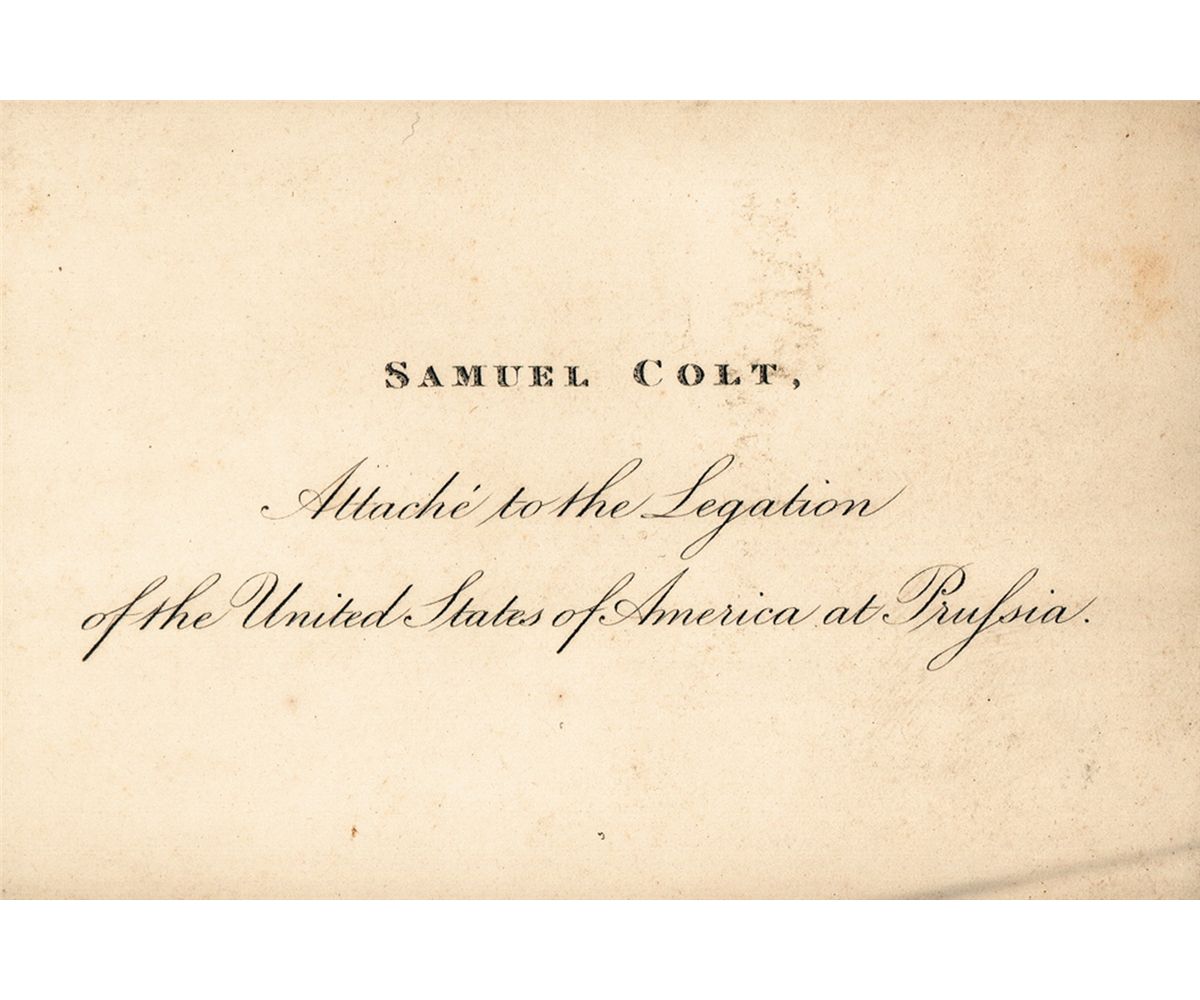 SAMUEL COLT,
Attaché to the Legation
of the United States of America at Pruſsia.